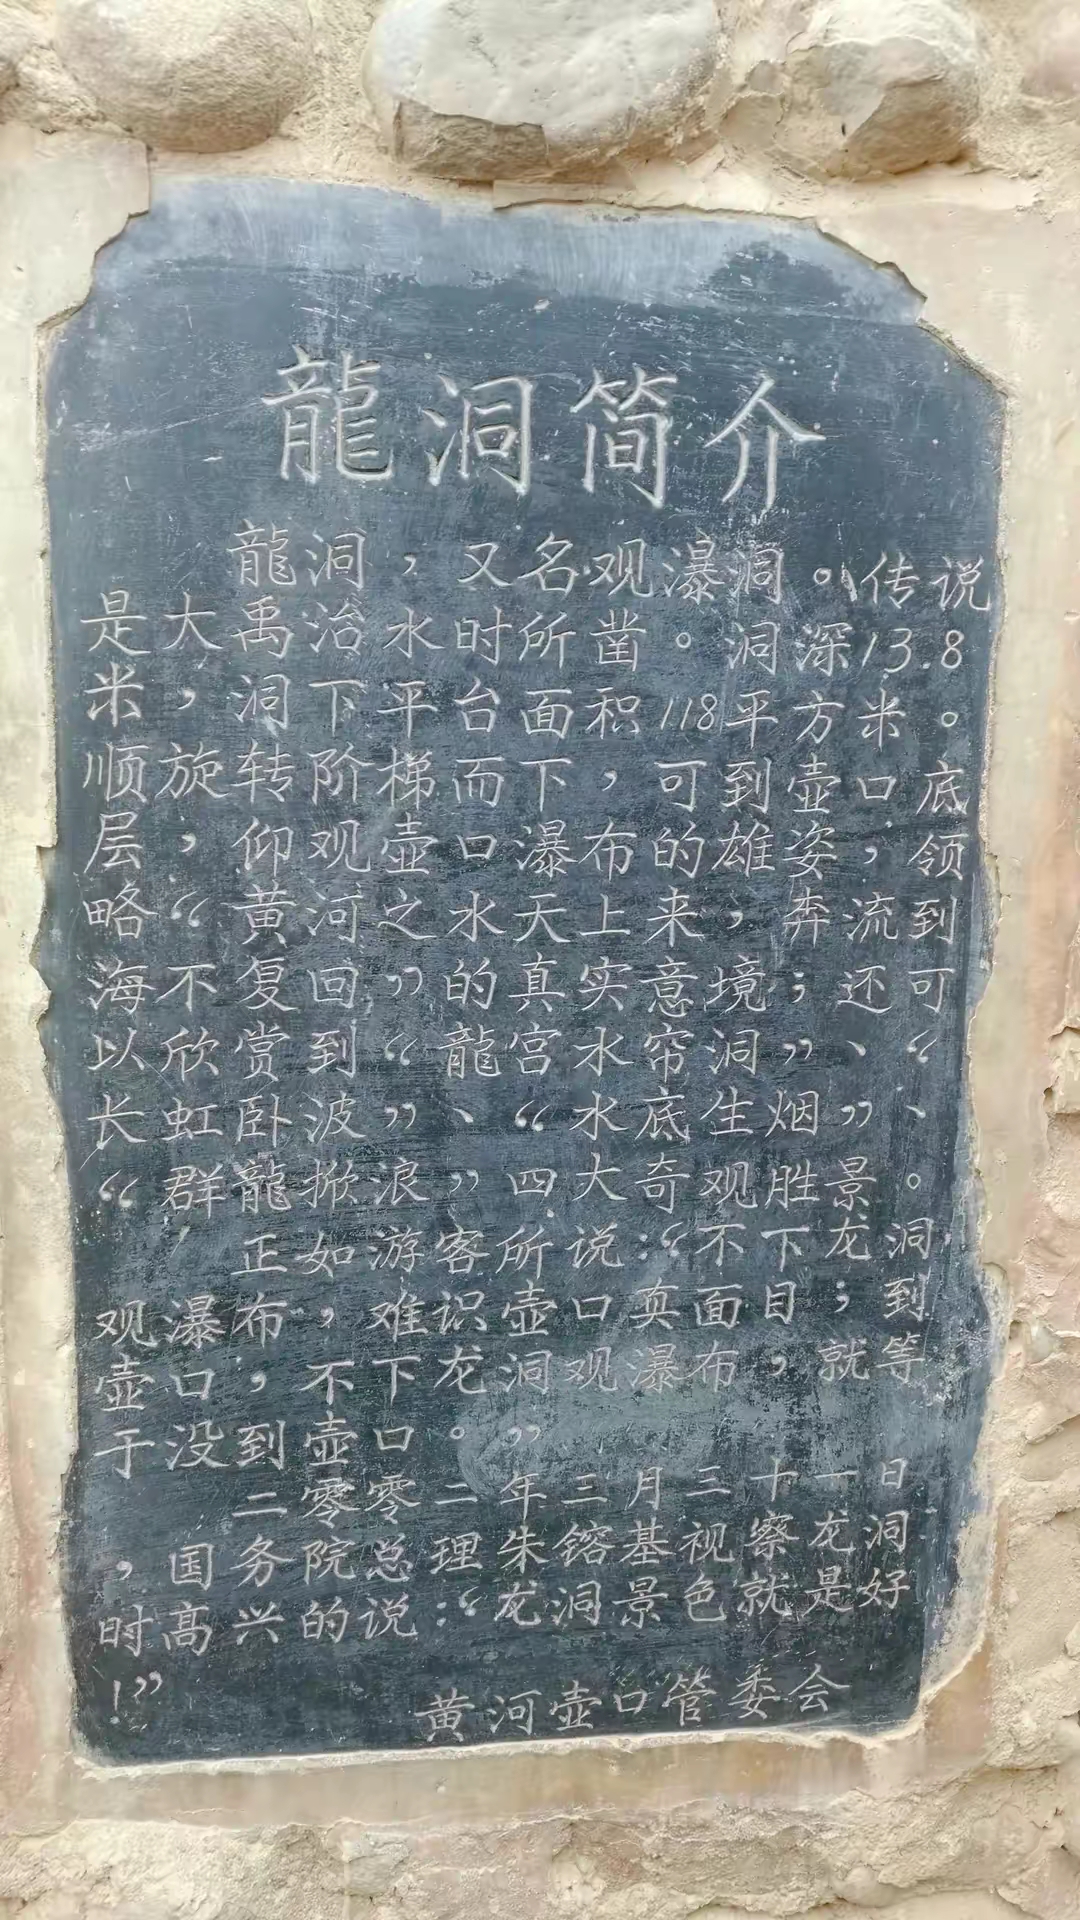 龍洞简介
龍洞，又名观瀑洞。传说
是大禹治水时所凿。洞深13.8
米，洞下平台面积118平方米。
顺旋转阶梯而下，可到壶口底
层，仰观壶口瀑布的雄姿，领
略“黄河之水天上来，奔流到
海不复回”的真实意境；还可
以欣赏到“龍宫水帘洞”、“
长虹卧波”、“水底生烟”、
“群龍掀浪”四大奇观胜景。
正如游客所说：“不下龙洞
观瀑布，难识壶口真面目；到
壶口，不下龙洞观瀑布，就等
于没到壶口。”
二零零二年三月三十一日
，国务院总理朱镕基视察龙洞
时高兴的说：“龙洞景色就是好
！”
黄河壶口管委会